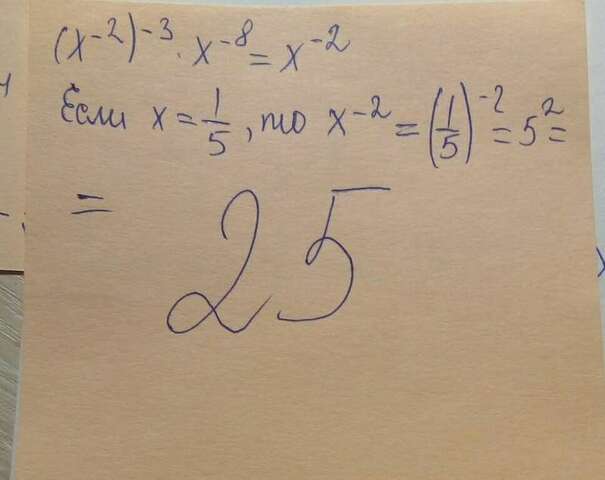 (x⁻²)⁻³ · x⁻⁸ = x⁻²
Если x = 1/5, то x⁻² = (1/5)⁻² = 5² =
= 25